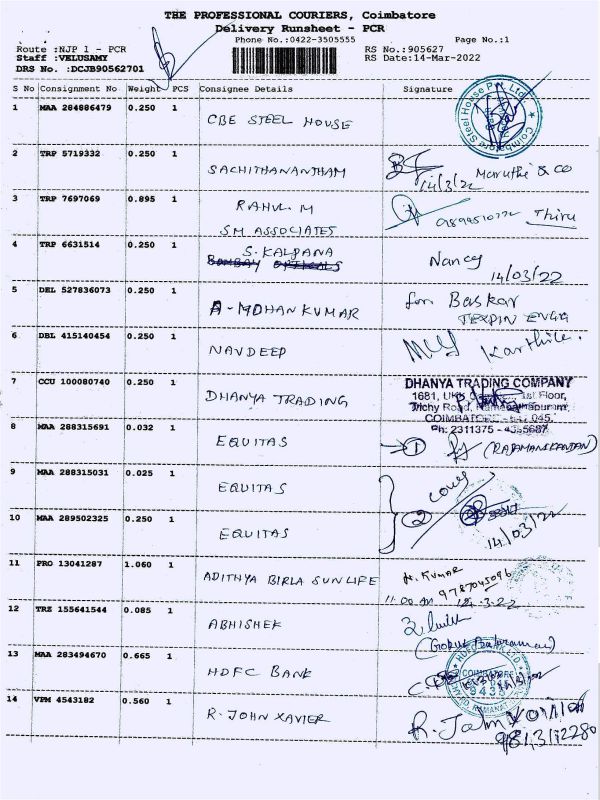 THE PROFESSIONAL COURIERS, Coimbatore
Delivery Runsheet - PCR
Phone No.:0422-3505555 Page No.:1
Route :NJP 1 - PCR RS No.:905627
Staff :VELUSAMY RS Date:14-Mar-2022
DRS No. :DCJB90562701
S No Consignment No Weight PCS Consignee Details Signature
1 MAA 284886479 0.250 1 CBE STEEL HOUSE
Coimbatore Steel House Pvt. Ltd.
2 TRP 5719332 0.250 1 SACHITHANANTHAM Maruthi & Co
14/3/22
3 TRP 7697069 0.895 1 RAHUL M Thiru
SM ASSOCIATES
4 TRP 6631514 0.250 1 S. KALPANA Nancy
BOMBAY OPTICALS 14/03/22
5 DEL 527836073 0.250 1 A-MOHAN KUMAR for Baskar
TEXPIN ENGG
6 DBL 415140454 0.250 1 NAVDEEP Karthik.
7 CCU 100080740 0.250 1 DHANYA TRADING
DHANYA TRADING COMPANY
1681, 1st Floor,
Trichy Road, Ramanathapuram,
COIMBATORE - 641 045.
Ph: 2311375 - 4355687
8 MAA 288315691 0.032 1 EQUITAS 1 (RAJAMANIKANDAN)
9 MAA 288315031 0.025 1 EQUITAS
10 MAA 289502325 0.250 1 EQUITAS 2
14/03/22
11 PRO 13041287 1.060 1 ADITHYA BIRLA SUNLIFE M. KUMAR
9787045096
11.00 AM 14.3.22
12 TRZ 155641544 0.085 1 ABHISHEK
13 MAA 283494670 0.665 1 HDFC BANK
COIMBATORE
14 VPM 4543182 0.560 1 R. JOHN XAVIER R. John Xavier